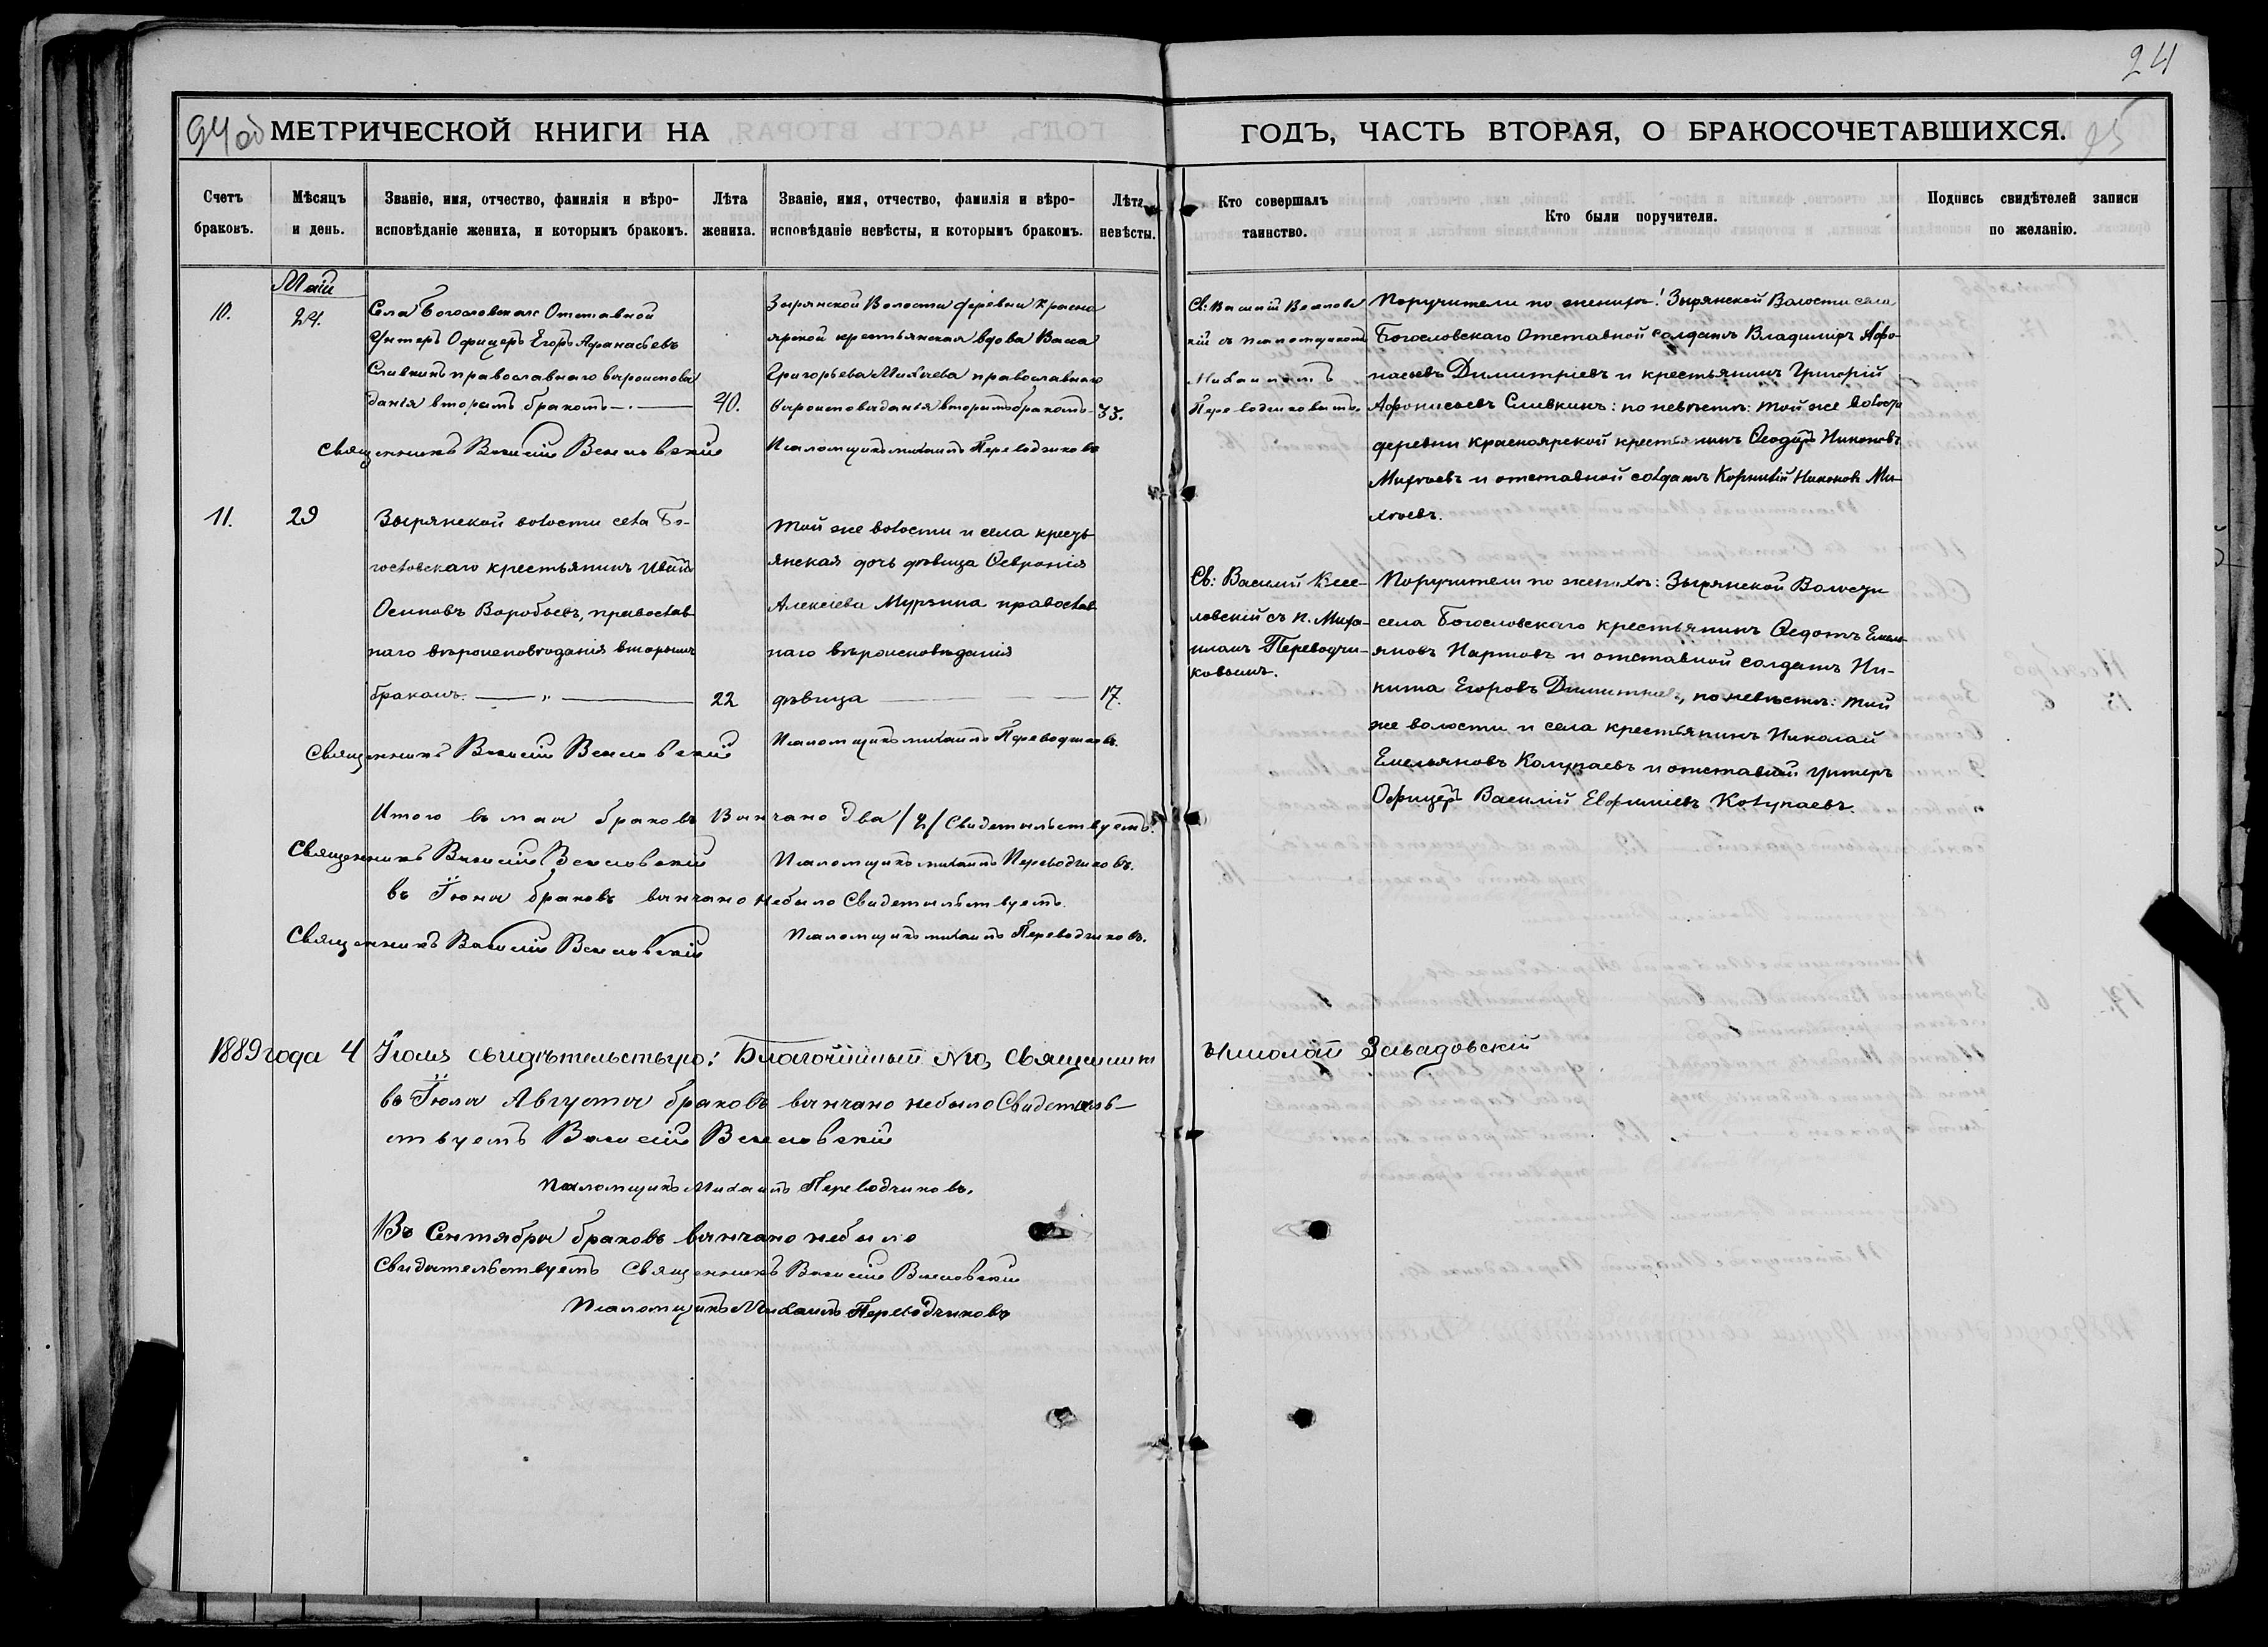 24
94 об МЕТРИЧЕСКОЙ КНИГИ НА
ГОДЪ, ЧАСТЬ ВТОРАЯ, О БРАКОСОЧЕТАВШИХСЯ. 95
Счетъ
браковъ.
Мѣсяцъ
и день.
Званіе, имя, отчество, фамилія и вѣро-
исповѣданіе жениха, и которымъ бракомъ.
Лѣта
жениха.
Званіе, имя, отчество, фамилія и вѣро-
исповѣданіе невѣсты, и которымъ бракомъ.
Лѣта
невѣсты.
Кто совершалъ
таинство.
Кто были поручители.
Подпись свидѣтелей записи
по желанію.
Маій
10.
24.
Села Богословскаго Отставной
Унтеръ Офицеръ Егоръ Афанасьевъ
Сливкинъ православнаго вѣроисповѣ
данія вторымъ бракомъ
40.
Зырянской Волости деревни Красно
ярской крестьянская вдова Васса
Григорьева Михѣева православнаго
вѣроисповѣданія вторымъ бракомъ
33.
Св: Василій Веселовс
кій съ псаломщикомъ
Михаиломъ
Переводчиковымъ.
Поручители по женихѣ: Зырянской Волости села
Богословскаго Отставной солдатъ Владиміръ Афо-
насьевъ Димитріевъ и крестьянинъ Григорій
Афонисьевъ Сливкинъ: по невѣстѣ: той же волости
деревни Красноярской крестьянинъ Ѳеодоръ Никоновъ
Михѣевъ и отставной солдатъ Корнилій Никоновъ Ми-
хѣевъ.
священникъ Василій Веселовскій
Псаломщикъ Михаилъ Переводчиковъ
11.
29
Зырянской волости села Бо-
гословскаго крестьянинъ Иванъ
Осиповъ Воробьевъ, православ
наго вѣроисповѣданія вторымъ
бракомъ.
22
той же волости и села кресть
янская дочь дѣвица Ѳевронія
Алексѣева Мурзина православ
наго вѣроисповѣданія
дѣвица
17.
Св: Василій Весе-
ловскій съ п. Миха-
иломъ Переводчи-
ковымъ.
Поручители по женихѣ: Зырянской Волости
села Богословскаго крестьянинъ Ѳедотъ Емель-
яновъ Нартовъ и отставной солдатъ Ни-
кита Егоровъ Димитріевъ, по невѣстѣ: той
же волости и села крестьянинъ Николай
Емельяновъ Колупаевъ и отставной унтеръ
Офицеръ Василій Евфиміевъ Колупаевъ.
священникъ Василій Веселовскій
Псаломщикъ Михаилъ Переводчиковъ.
Итого въ маѣ браковъ вѣнчано два /2/ Свидетельствуемъ:
Священникъ Василій Веселовскій
Псаломщикъ Михаилъ Переводчиковъ.
въ Іюнѣ браковъ вѣнчано небыло Свидетельствуемъ.
Священникъ Василій Веселовскій
Псаломщикъ Михаилъ Переводчиковъ.
1889 года 4 Іюля свидѣтельствую: Благочинный №10, Священникъ Николай Завадовскій
въ Іюлѣ Августѣ браковъ вѣнчано небыло Свидетель-
ствуемъ Василій Веселовскій
псаломщикъ Михаилъ Переводчиковъ.
Въ Сентябрѣ браковъ вѣнчано небыло
Свидетельствуемъ Священникъ Василій Веселовскій
Псаломщикъ Михаилъ Переводчиковъ